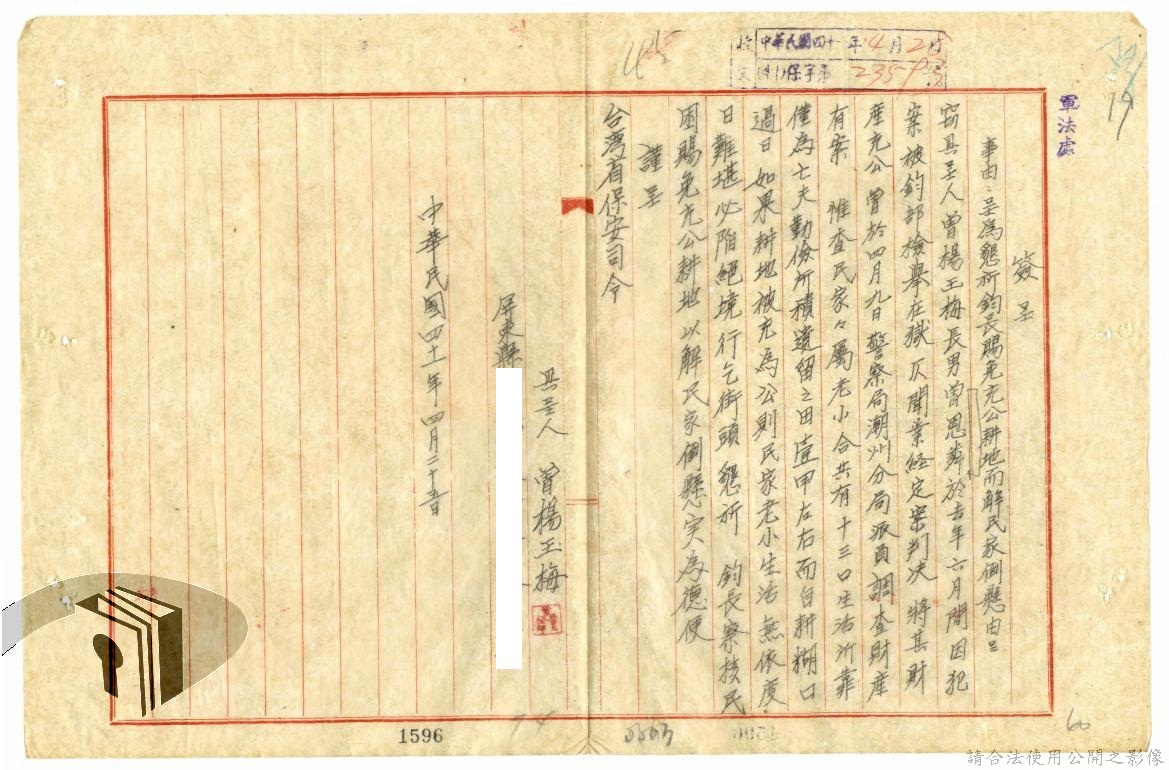 軍法處
中華民國四十 年4月25
保字第 23593
19
簽呈
事由：呈為懇祈鈞長賜免充公耕地而解民家倒懸由呈
窃具呈人曾楊玉梅長男曾恩 於去年六月間因犯
案被鈞部檢舉在獄 仄聞業経定案判決 將其財
產充公 曾於四月九日警察局潮州分局派員調查財產
有案 惟查民家々屬老小合共有十三口生活所靠
僅為亡夫勤儉所積遺留之田壹甲左右而自耕糊口
過日 如果耕地被充為公則民家老小生活無依度
日難堪必陷絕境行乞街頭 懇祈 鈞長察核民
困賜免充公耕地以解民家倒懸実為德便
謹呈
台湾省保安司令
具呈人 曾楊玉梅
屏東縣
中華民國四十一年四月二十五日
1596
60
請合法使用公開之影像